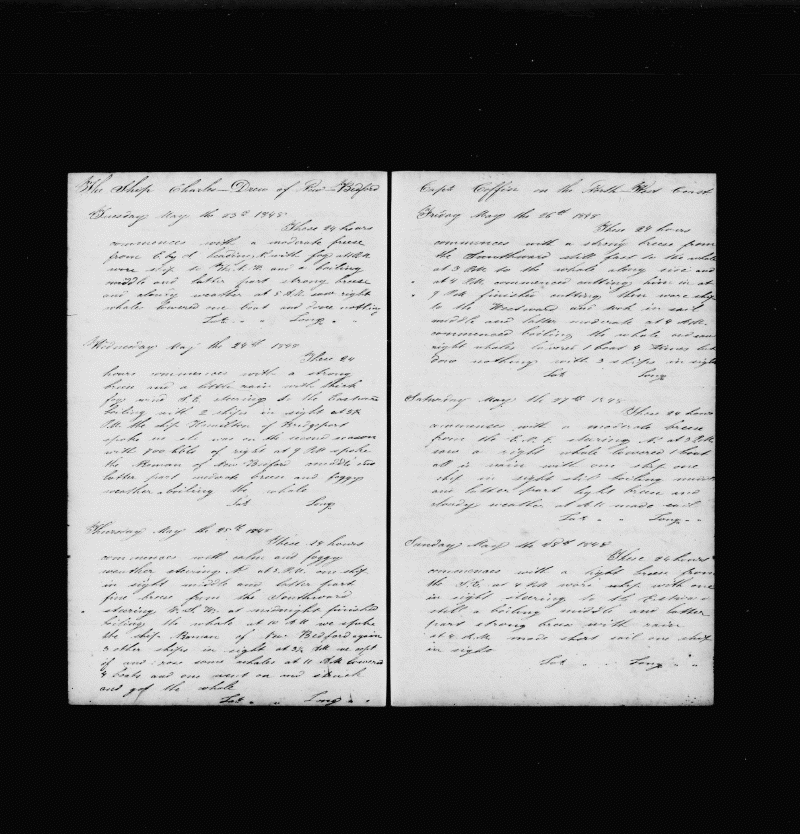 The Ship Charles Drew of New Bedford
Tuesday May the 23d 1848
These 24 hours
commences with a moderate breeze
from E by S heading N with fog at
wore ship to and a boiling
middle and latter part strong breeze
and stormy weather at 5 A.M. saw right
whales lowered one boat and done nothing
Lat " " Long " "
Wednesday May the 24th 1848
These 24
hours commences with a strong
breeze and a little rain with thick
fog wind S.E. steering to the Eastward
boiling with 2 ships in sight at
P.M. the ship Hamilton of Bridgeport
spoke us she was on the second season
with 700 bbls of right at 9 P.M. spoke
the Roman of New Bedford middle and
latter part moderate breeze and foggy
weather boiling the whale
Lat Long
Thursday May the 25th 1848
These 24 hours
commences with calm and foggy
weather steering N. at 2 P.M. one ship
in sight middle and latter part
fine breeze from the Southward
steering at midnight finished
boiling the whale at 10 A.M. we spoke
the ship Roman of New Bedford again
3 other ships in sight at
and some whales at 11 A.M. lowered
4 boats and one went on and struck
and got the whale
Lat " " Long " "
Capt Coffin on the North West Coast
Friday May the 26th 1848
These 24 hours
commences with a strong breeze from
the Southward still fast to the whale
at 3 P.M. to the whale along side and
at 4 P.M. commenced cutting him in at
9 P.M. finished cutting then wore ship
to the Westward and took in sail
middle and latter moderate at 4 A.M.
commenced boiling the whale and saw
right whales lowered 1 boat 4 times but
done nothing with 3 ships in sight
Lat Long
Saturday May the 27th 1848
These 24 hours
commences with a moderate breeze
from the steering N. at 3 P.M.
saw a right whale lowered 1 boat
all in vain with one ship one
ship in sight still boiling middle
and latter part light breeze and
steady weather at A.M. made sail
Lat " " Long " "
Sunday May the 28th 1848
These 24 hours
commences with a light breeze from
the S.E. at 4 P.M. wore ship with one
in sight steering to the
still a boiling middle and latter
part strong breeze with rain
at 4 A.M. made short sail one ship
in sight
Lat " " Long " "